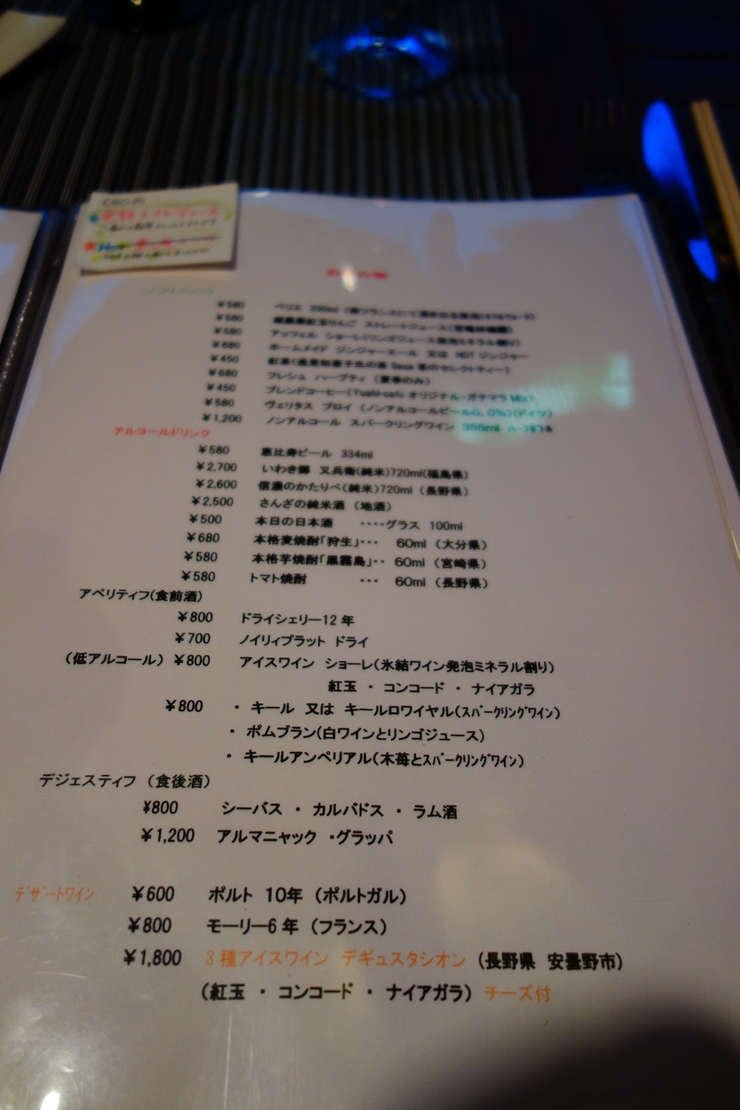 ソフトドリンク
¥580 ペリエ 330ml
¥580 ストレートジュース
¥580 アッフェル ショーレ(リンゴジュース発泡ミネラル割り)
¥680 ホームメイド ジンジャーエール 又は HOT ジンジャー
¥450 紅茶
¥680 フレシュ ハーブティ (夏季のみ)
¥450 ブレンドコーヒー(Yushi-cafe オリジナル・ガテマラ Mix)
¥580 ヴェリタス ブロイ (ノンアルコールビール0.0%)(ドイツ)
¥1,200 ノンアルコール スパークリングワイン 355ml ハーフボトル
アルコールドリンク
¥580 恵比寿ビール 334ml
¥2,700 いわき郷 又兵衛(純米)720ml(福島県)
¥2,600 信濃のかたりべ(純米)720ml (長野県)
¥2,500 さんざの純米酒 (地酒)
¥500 本日の日本酒 ････グラス 100ml
¥680 本格麦焼酎「狩生」･･･ 60ml (大分県)
¥580 本格芋焼酎「黒霧島」･･ 60ml (宮崎県)
¥580 トマト焼酎 ･･･ 60ml (長野県)
アペリティフ(食前酒)
¥800 ドライシェリー12年
¥700 ノイリィプラット ドライ
(低アルコール) ¥800 アイスワイン ショーレ(氷結ワイン発泡ミネラル割り)
紅玉 ・ コンコード ・ ナイアガラ
¥800 ・ キール 又は キールロワイヤル(ｽﾊﾟｰｸﾘﾝｸﾞﾜｲﾝ)
・ ポムブラン(白ワインとリンゴジュース)
・ キールアンペリアル(木苺とｽﾊﾟｰｸﾘﾝｸﾞﾜｲﾝ)
デジェスティフ (食後酒)
¥800 シーバス ・ カルバドス ・ ラム酒
¥1,200 アルマニャック ・グラッパ
ﾃﾞｻﾞｰﾄﾜｲﾝ ¥600 ポルト 10年 (ポルトガル)
¥800 モーリー6年 (フランス)
¥1,800 3種アイスワイン デギュスタシオン (長野県 安曇野市)
(紅玉 ・ コンコード ・ ナイアガラ) チーズ付